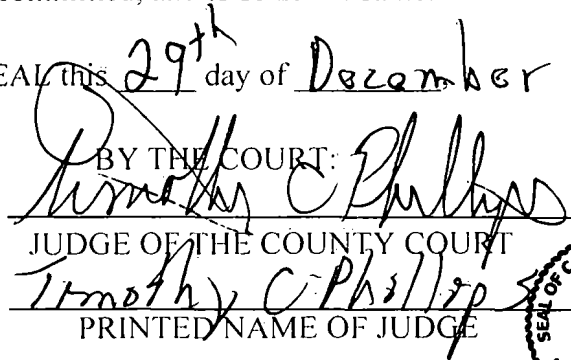 EAL this 29th day of December
BY THE COURT:
Timothy C Phillips
JUDGE OF THE COUNTY COURT
Timothy C Phillips
PRINTED NAME OF JUDGE
SEAL OF C